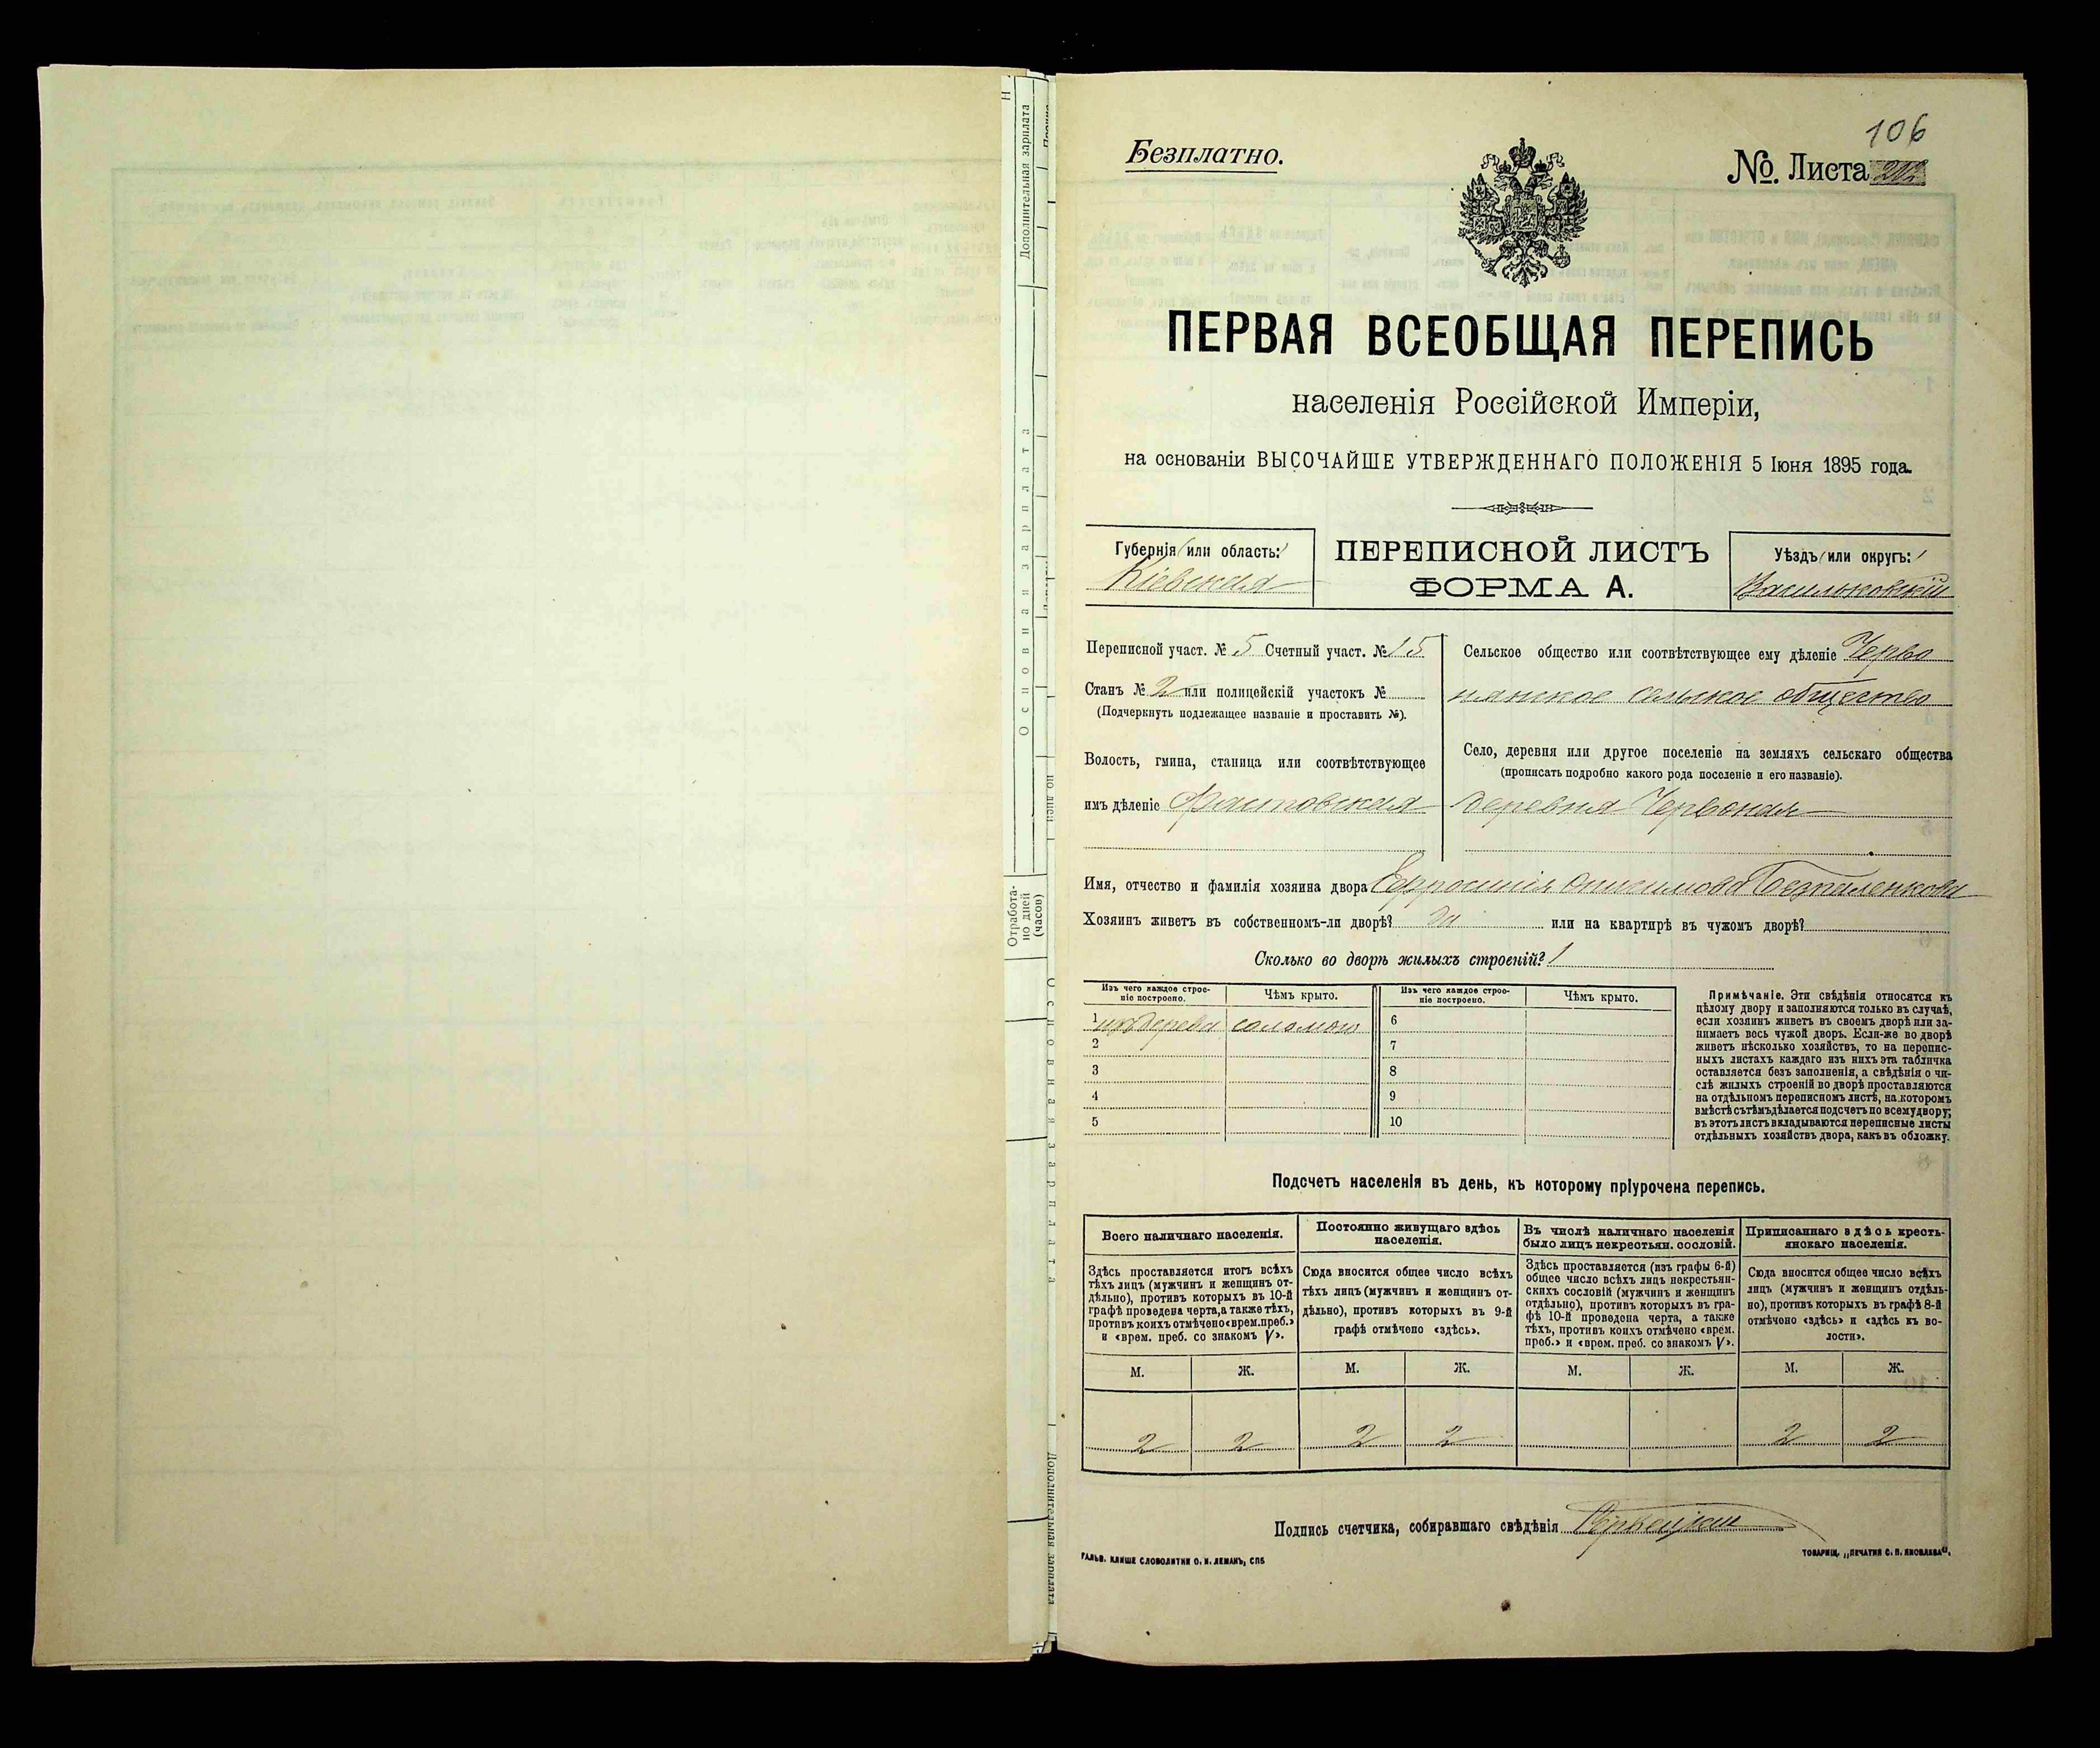 106
Безплатно.
№. Листа
ПЕРВАЯ ВСЕОБЩАЯ ПЕРЕПИСЬ
населенія Россійской Имперіи,
на основаніи ВЫСОЧАЙШЕ УТВЕРЖДЕННАГО ПОЛОЖЕНІЯ 5 Іюня 1895 года.
Губернія (или область:)
Кіевская
ПЕРЕПИСНОЙ ЛИСТЪ
ФОРМА А.
Уѣздъ (или округъ:)
Васильковскій
Переписной участ. № 5 Счетный участ. № 15
Станъ № 2 или полицейскій участокъ №
(Подчеркнуть подлежащее названіе и проставить №).
Волость, гмина, станица или соотвѣтствующее
имъ дѣленіе Фастовская
Сельское общество или соотвѣтствующее ему дѣленіе Черво
нянское сельское общество
Село, деревня или другое поселеніе на земляхъ сельскаго общества
(прописать подробно какого рода поселеніе и его названіе).
деревня Червоная
Имя, отчество и фамилія хозяина двора Ефросинія Онисимова Безпаленкова
Хозяинъ живетъ въ собственномъ-ли дворѣ? да или на квартирѣ въ чужомъ дворѣ?
Сколько во дворѣ жилыхъ строеній? 1
Изъ чего каждое строе-
ніе построено.
Чѣмъ крыто.
Изъ чего каждое строе-
ніе построено.
Чѣмъ крыто.
1 изъ дерева соломою 6
2 7
3 8
4 9
5 10
Примѣчаніе. Эти свѣдѣнія относятся къ
цѣлому двору и заполняются только въ случаѣ,
если хозяинъ живетъ въ своемъ дворѣ или за-
нимаетъ весь чужой дворъ. Если-же во дворѣ
живетъ нѣсколько хозяйствъ, то на перепис-
ныхъ листахъ каждаго изъ нихъ эта табличка
оставляется безъ заполненія, а свѣдѣнія о чи-
слѣ жилыхъ строеній во дворѣ проставляются
на отдѣльномъ переписномъ листѣ, на которомъ
вмѣстѣ съ тѣмъ дѣлается подсчетъ по всему двору;
въ этотъ листъ вкладываются переписные листы
отдѣльныхъ хозяйствъ двора, какъ въ обложку.
Подсчетъ населенія въ день, къ которому пріурочена перепись.
Всего наличнаго населенія.
Здѣсь проставляется итогъ всѣхъ
тѣхъ лицъ (мужчинъ и женщинъ от-
дѣльно), противъ которыхъ въ 10-й
графѣ проведена черта, а также тѣхъ,
противъ коихъ отмѣчено «врем. преб.»
и «врем. преб. со знакомъ V».
Постоянно живущаго здѣсь
населенія.
Сюда вносится общее число всѣхъ
тѣхъ лицъ (мужчинъ и женщинъ от-
дѣльно), противъ которыхъ въ 9-й
графѣ отмѣчено «здѣсь».
Въ числѣ наличнаго населенія
было лицъ некрестьян. сословій.
Здѣсь проставляется (изъ графы 6-й)
общее число всѣхъ лицъ некрестьян-
скихъ сословій (мужчинъ и женщинъ
отдѣльно), противъ которыхъ въ гра-
фѣ 10-й проведена черта, а также
тѣхъ, противъ коихъ отмѣчено «врем.
преб.» и «врем. преб. со знакомъ V».
Приписаннаго здѣсь кресть-
янскаго населенія.
Сюда вносится общее число всѣхъ
лицъ (мужчинъ и женщинъ отдѣль-
но), противъ которыхъ въ графѣ 8-й
отмѣчено «здѣсь» и «здѣсь къ во-
лости».
М. Ж. М. Ж. М. Ж. М. Ж.
2 2 2 2 2 2
Подпись счетчика, собиравшаго свѣдѣнія
ГАЛЬВ. КЛИШЕ СЛОВОЛИТНИ О. И. ЛЕМАНЪ, СПБ
ТОВАРИЩ. „ПЕЧАТНЯ С. П. ЯКОВЛЕВА“.
Дополнительная зарплата
Основная зарплата
Отработа-
но дней
(часов)
Основная зарплата
Дополнительная зарплата